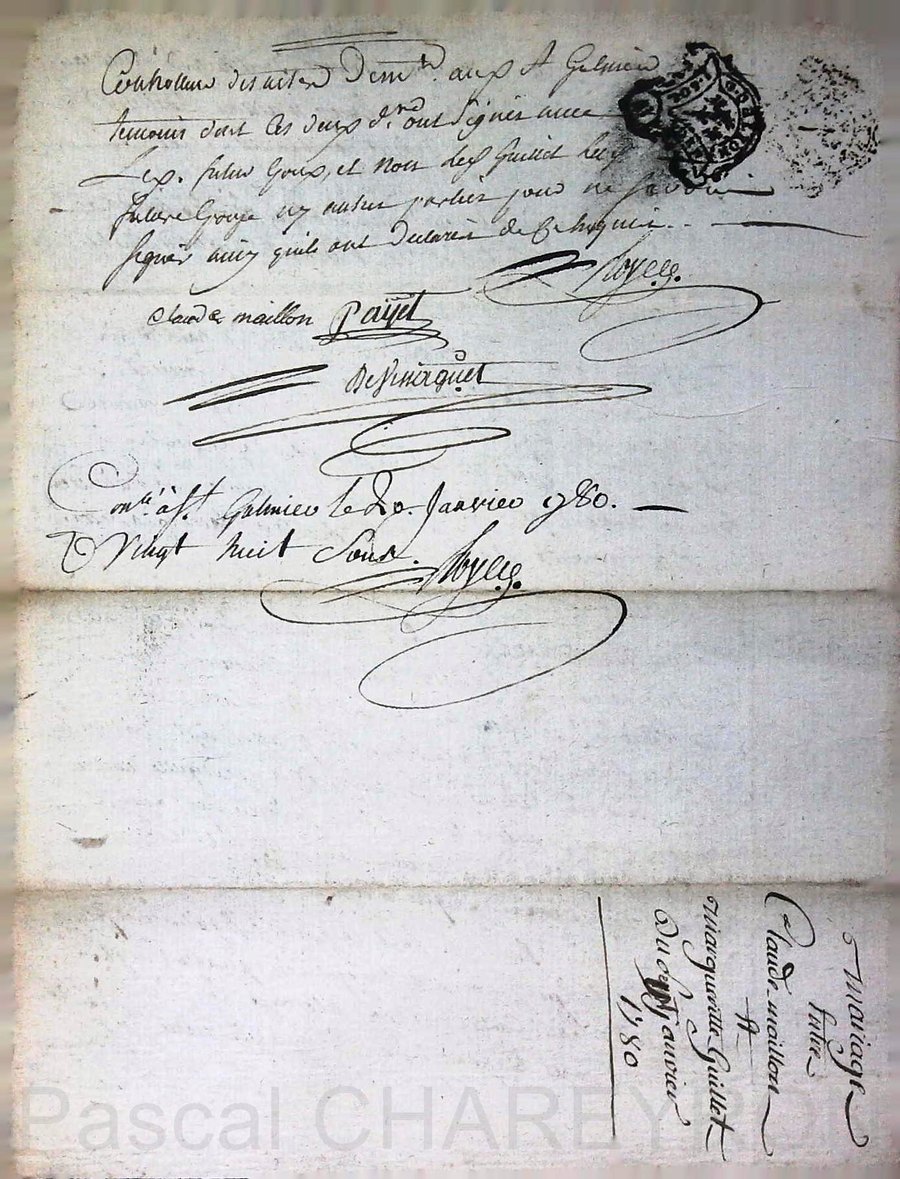 Controlleur des actes Dem.te aux St Galmier
temoins dont les deux d.rs ont signés avec
Les. futur Epoux, et non led Guillet
future Epouse ny autres parties pour ne Scavoir
signer ainsy quils ont declarés de ce Enquis..
Royet
claude maillon Payet
Desmarquet
Con.lé à St. Galmier le 20. Janvier 1780. —
Vingt huit Sous. Royet
Mariage
Entre
Claude maillon
&
Margueritte Guillet
Du Janvier
1780
Pascal CHAREYRON